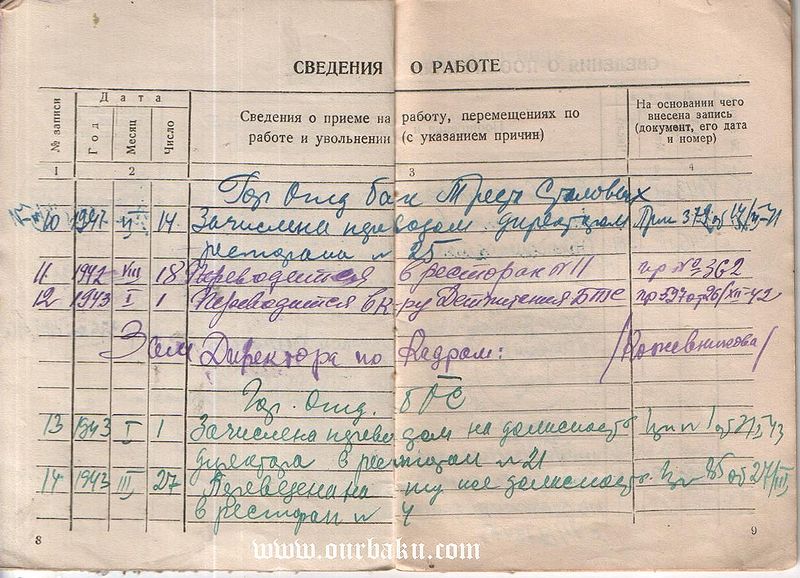 СВЕДЕНИЯ О РАБОТЕ
№ записи
Дата
Год
Месяц
Число
Сведения о приеме на работу, перемещениях по
работе и увольнении (с указанием причин)
На основании чего
внесена запись
(документ, его дата
и номер)
1 2 3 4
Гор. Отд. Бак Треста Столовых
10 1941 14 Зачислена переводом директором
ресторана № 25
11 1942 VIII 18 Переводится в ресторан № 11 пр № 362
12 1943 I 1 Переводится в К-ру Детпитания БТС пр 597 от 26/XII-42
Зам Директора по Кадрам: /Кожевникова/
Гор. Отд. БТС
13 1943 I 1 Зачислена переводом на должность
директора в ресторан № 21
14 1943 III 27 Переведена на ту же должность. 85 от 27/III
в ресторан № 4
8
9
www.ourbaku.com